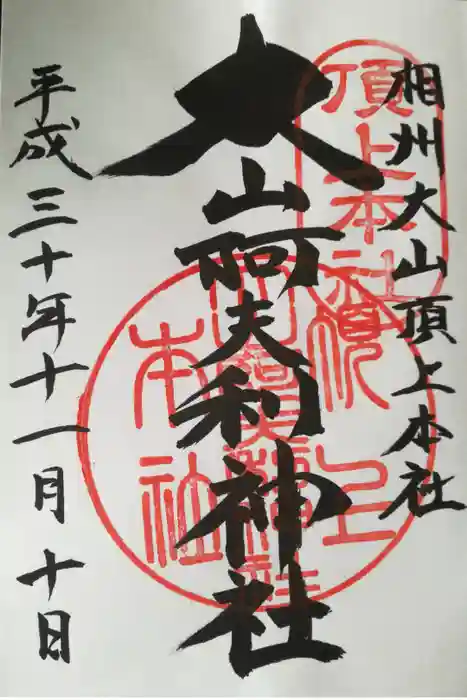 相州大山頂上本社
頂上本社
大山阿夫利神社
頂上
本社
平成三十年十一月十日